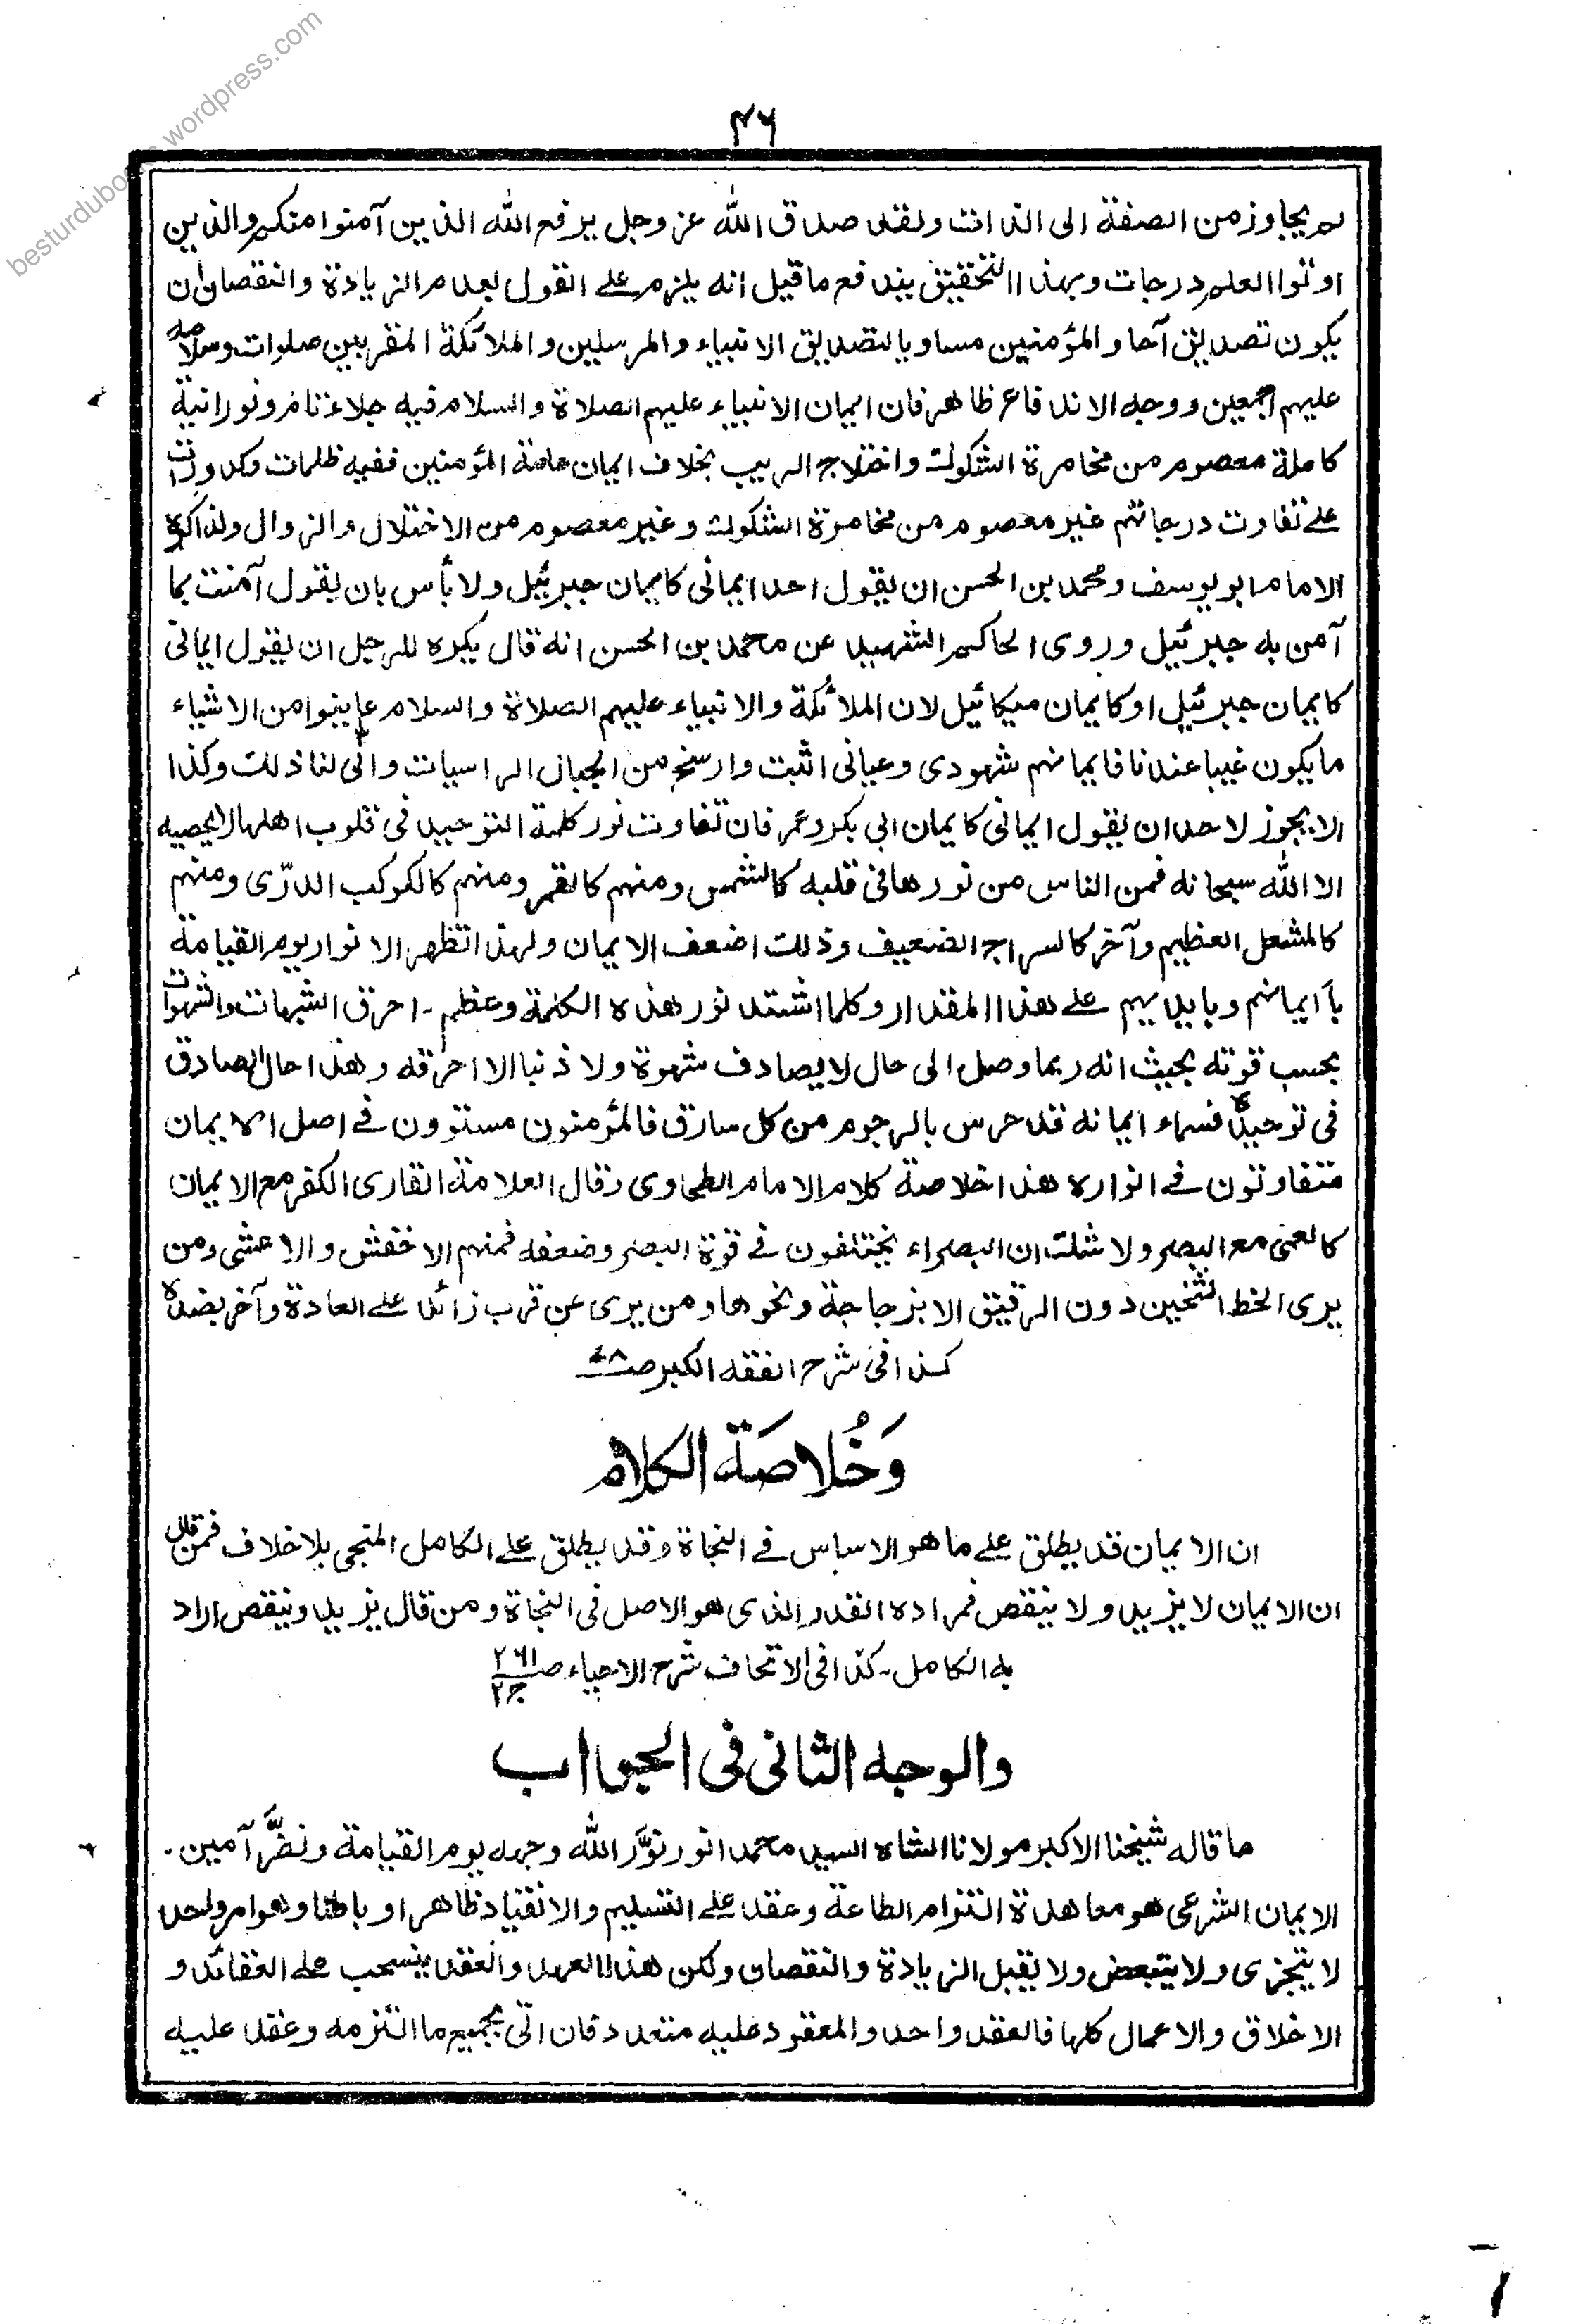 besturdubooks.wordpress.com
۴۶
لم يجاوز من الصفة الى الذات ولقد صدق الله عز وجل يرفع الله الذين آمنوا منكم والذين
اوتوا العلم درجات وبهذا التحقيق يندفع ما قيل انه يلزم على القول بعدم الزيادة والنقصان ان
يكون تصديق آحاد المؤمنين مساويا لتصديق الانبياء والمرسلين والملائكة المقربين صلوات الله وسلامه
عليهم اجمعين ووجه الاندفاع ظاهر فان ايمان الانبياء عليهم الصلاة والسلام فيه جلاء تام ونورانية
كاملة معصوم من مخامرة الشكوك واختلاج الريب بخلاف ايمان عامة المؤمنين ففيه ظلمات وكدورات
على تفاوت درجاتهم غير معصوم من مخامرة الشكوك وغير معصوم من الاختلال والزوال ولذا كره
الامام ابو يوسف ومحمد بن الحسن ان يقول احد ايمانى كايمان جبرئيل ولا بأس بان يقول آمنت بما
آمن به جبرئيل وروى الحاكم الشهيد عن محمد بن الحسن انه قال يكره للرجل ان يقول ايمانى
كايمان جبرئيل او كايمان ميكائيل لان الملائكة والانبياء عليهم الصلاة والسلام عاينوا من الاشياء
ما يكون غيبا عندنا فايمانهم شهودى وعيانى اثبت وارسخ من الجبال الراسيات وانى لنا ذلك وكذا
لا يجوز لاحد ان يقول ايمانى كايمان ابى بكر وعمر فان تفاوت نور كلمة التوحيد فى قلوب اهلها لا يحصيه
الا الله سبحانه فمن الناس من نورها فى قلبه كالشمس ومنهم كالقمر ومنهم كالكوكب الدرّى ومنهم
كالمشعل العظيم وآخر كالسراج الضعيف وذلك اضعف الايمان ولهذا تظهر الانوار يوم القيامة
بأيمانهم وبايديهم على هذا المقدار وكلما اشتد نور هذه الكلمة وعظم - احرق الشبهات والشهوات
بحسب قوته بحيث انه ربما وصل الى حال لا يصادف شهوة ولا ذنبا الا احرقه وهذا حال الصادق
فى توحيده فسماء ايمانه قد حرس بالرجوم من كل سارق فالمؤمنون مستوون فى اصل الايمان
متفاوتون فى انواره هذا خلاصة كلام الامام الطحاوى وقال العلامة القارى الكفر مع الايمان
كالعمى مع البصر ولا شك ان البصراء يختلفون فى قوة البصر وضعفه فمنهم الاخفش والاعشى ومن
يرى الخط الثخين دون الرقيق الا بزجاجة ونحوها ومن يرى عن قرب زائد على العادة وآخر بضده
كذا فى شرح الفقه الاكبر
وَخُلاصَة الكلام
ان الايمان قد يطلق على ما هو الاساس فى النجاة وقد يطلق على الكامل المنجى بلا خلاف فمن قال
ان الايمان لا يزيد ولا ينقص فمراده القدر الذى هو الاصل فى النجاة ومن قال يزيد وينقص اراد
به الكامل - كذا فى الاتحاف شرح الاحياء صـ۲۶۱ ج۲
والوجه الثانى فى الجواب
ما قاله شيخنا الاكبر مولانا الشاه السيد محمد انور نوَّر الله وجهه يوم القيامة ونضَّر آمين.
الايمان الشرعى هو معاهدة التزام الطاعة وعقد على التسليم والانقياد ظاهرا وباطنا وهو امر واحد
لا يتجزى ولا يتبعض ولا يقبل الزيادة والنقصان ولكن هذا العهد والعقد ينسحب على العقائد و
الاخلاق والاعمال كلها فالعقد واحد والمعقود عليه متعدد فان اتى بجميع ما التزمه وعقد عليه